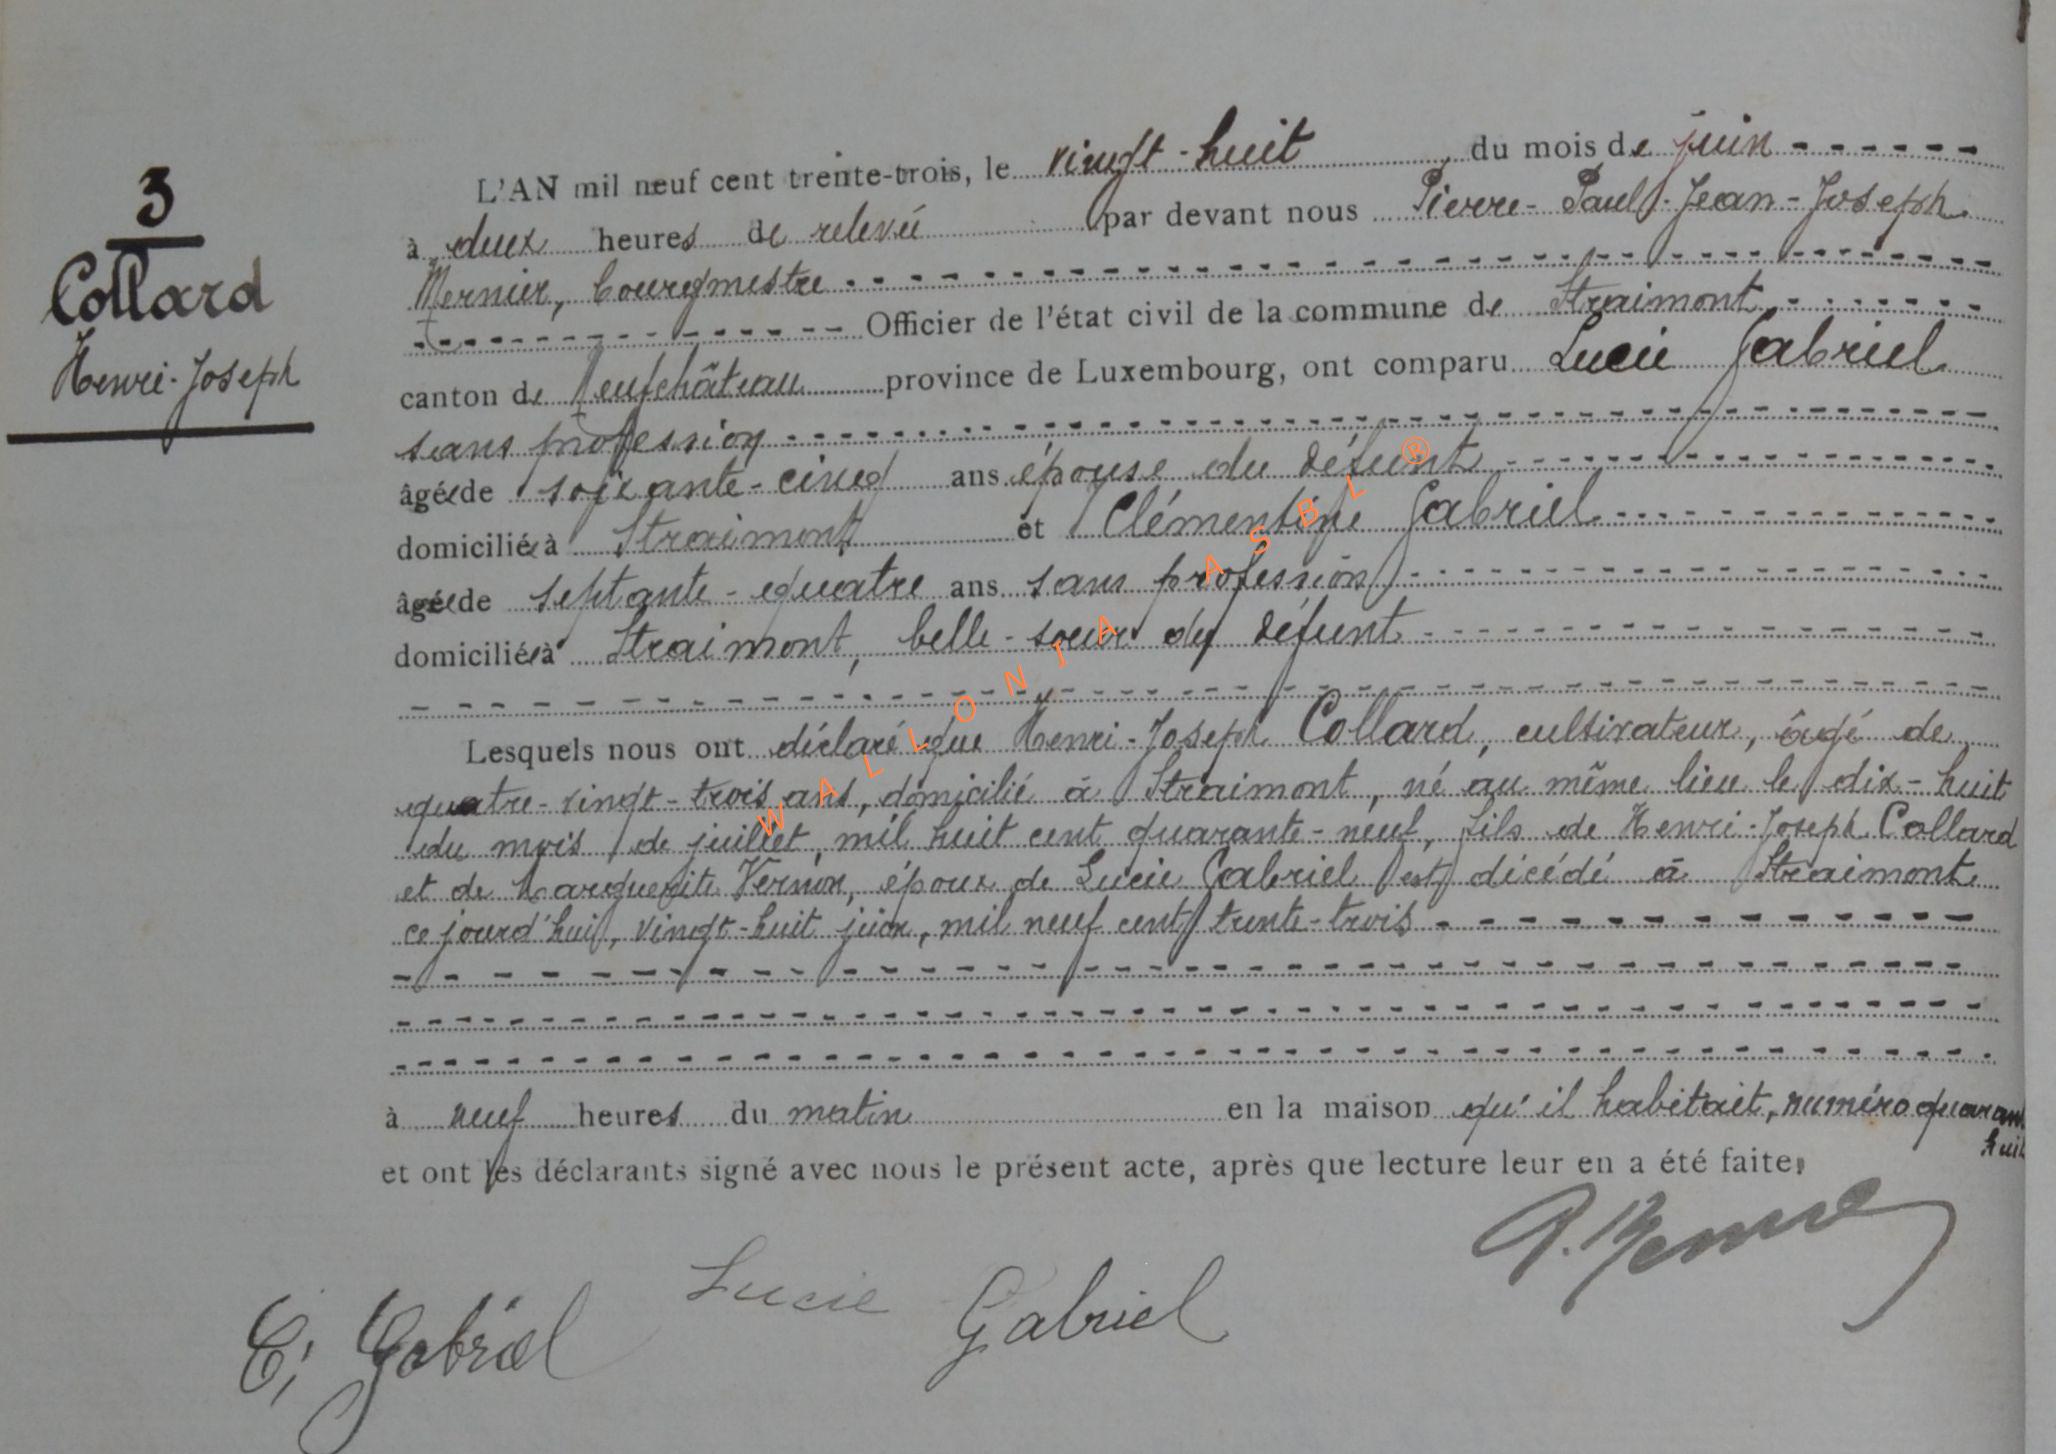 3
Collard
Henri-Joseph
L'AN mil neuf cent trente-trois, le vingt-huit du mois de juin
à deux heures de relevée par devant nous Pierre-Paul-Jean-Joseph
Mernier, bourgmestre
Officier de l'état civil de la commune de Straimont
canton de Neufchâteau province de Luxembourg, ont comparu Lucie Gabriel
sans profession
âgée de soixante-cinq ans épouse du défunt
domiciliée à Straimont et Clémentine Gabriel
âgée de septante-quatre ans sans profession
domiciliée à Straimont, belle-soeur du défunt
Lesquels nous ont déclaré que Henri-Joseph Collard, cultivateur, âgé de
quatre-vingt-trois ans, domicilié à Straimont, né au même lieu le dix-huit
du mois de juillet, mil huit cent quarante-neuf, fils de Henri-Joseph Collard
et de Marguerite Vernon, époux de Lucie Gabriel est décédé à Straimont
ce jourd'hui, vingt-huit juin, mil neuf cent trente-trois
à neuf heures du matin en la maison qu'il habitait, numéro quaran
huit
et ont les déclarants signé avec nous le présent acte, après que lecture leur en a été faite,
P. Mernier
Lucie Gabriel
C; Gabriel
WALLONIA ASBL ®